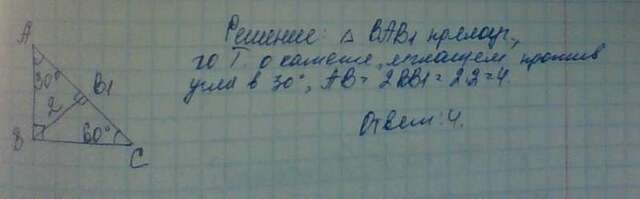 A
30°
B1
2
B
60°
C
Решение: △ BAB1 прямоуг.,
по Т. о катете, лежащем против
угла в 30°, AB = 2BB1 = 2·2=4.
Ответ: 4.